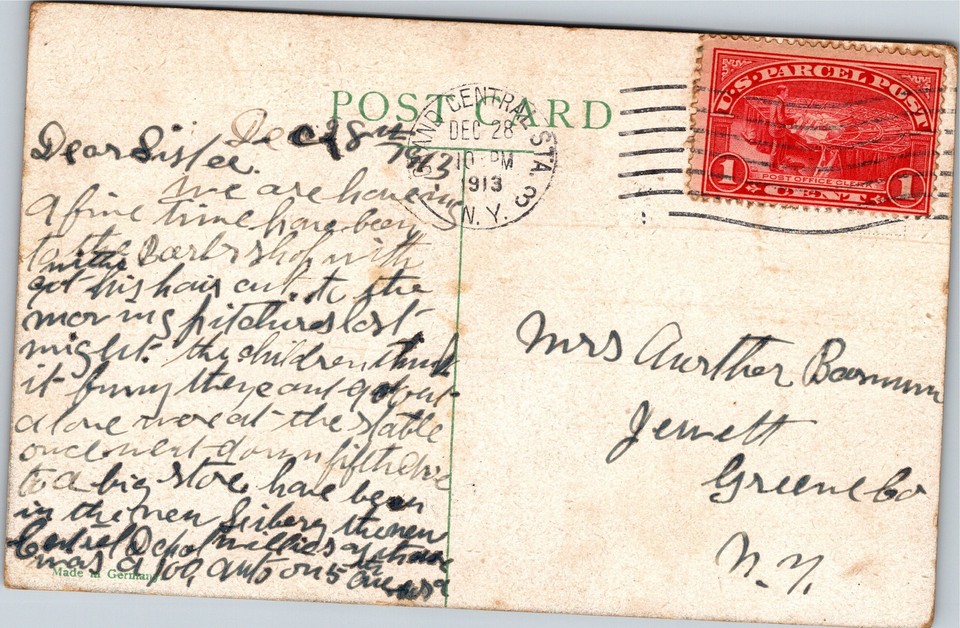 POST CARD
GRAND CENTRAL STA. 3
DEC 28
10 PM
1913
N.Y.
U.S. PARCEL POST
POST OFFICE CLERK
1 CENT 1
Dec 28 1913
Dear Sister.
We are haveing
a fine time have been
to the Barbrshop with
got his hair cut. to the
moving pitchers last
night. the children think
it funny they cant get out
alone were at the stable
once went down fifth Ave
to a big store have been
in the new
Central Depot
was a 100, auto on 5
Made in Germany
Mrs Aurther Barnum
Jewett
Greene Co
N.Y.